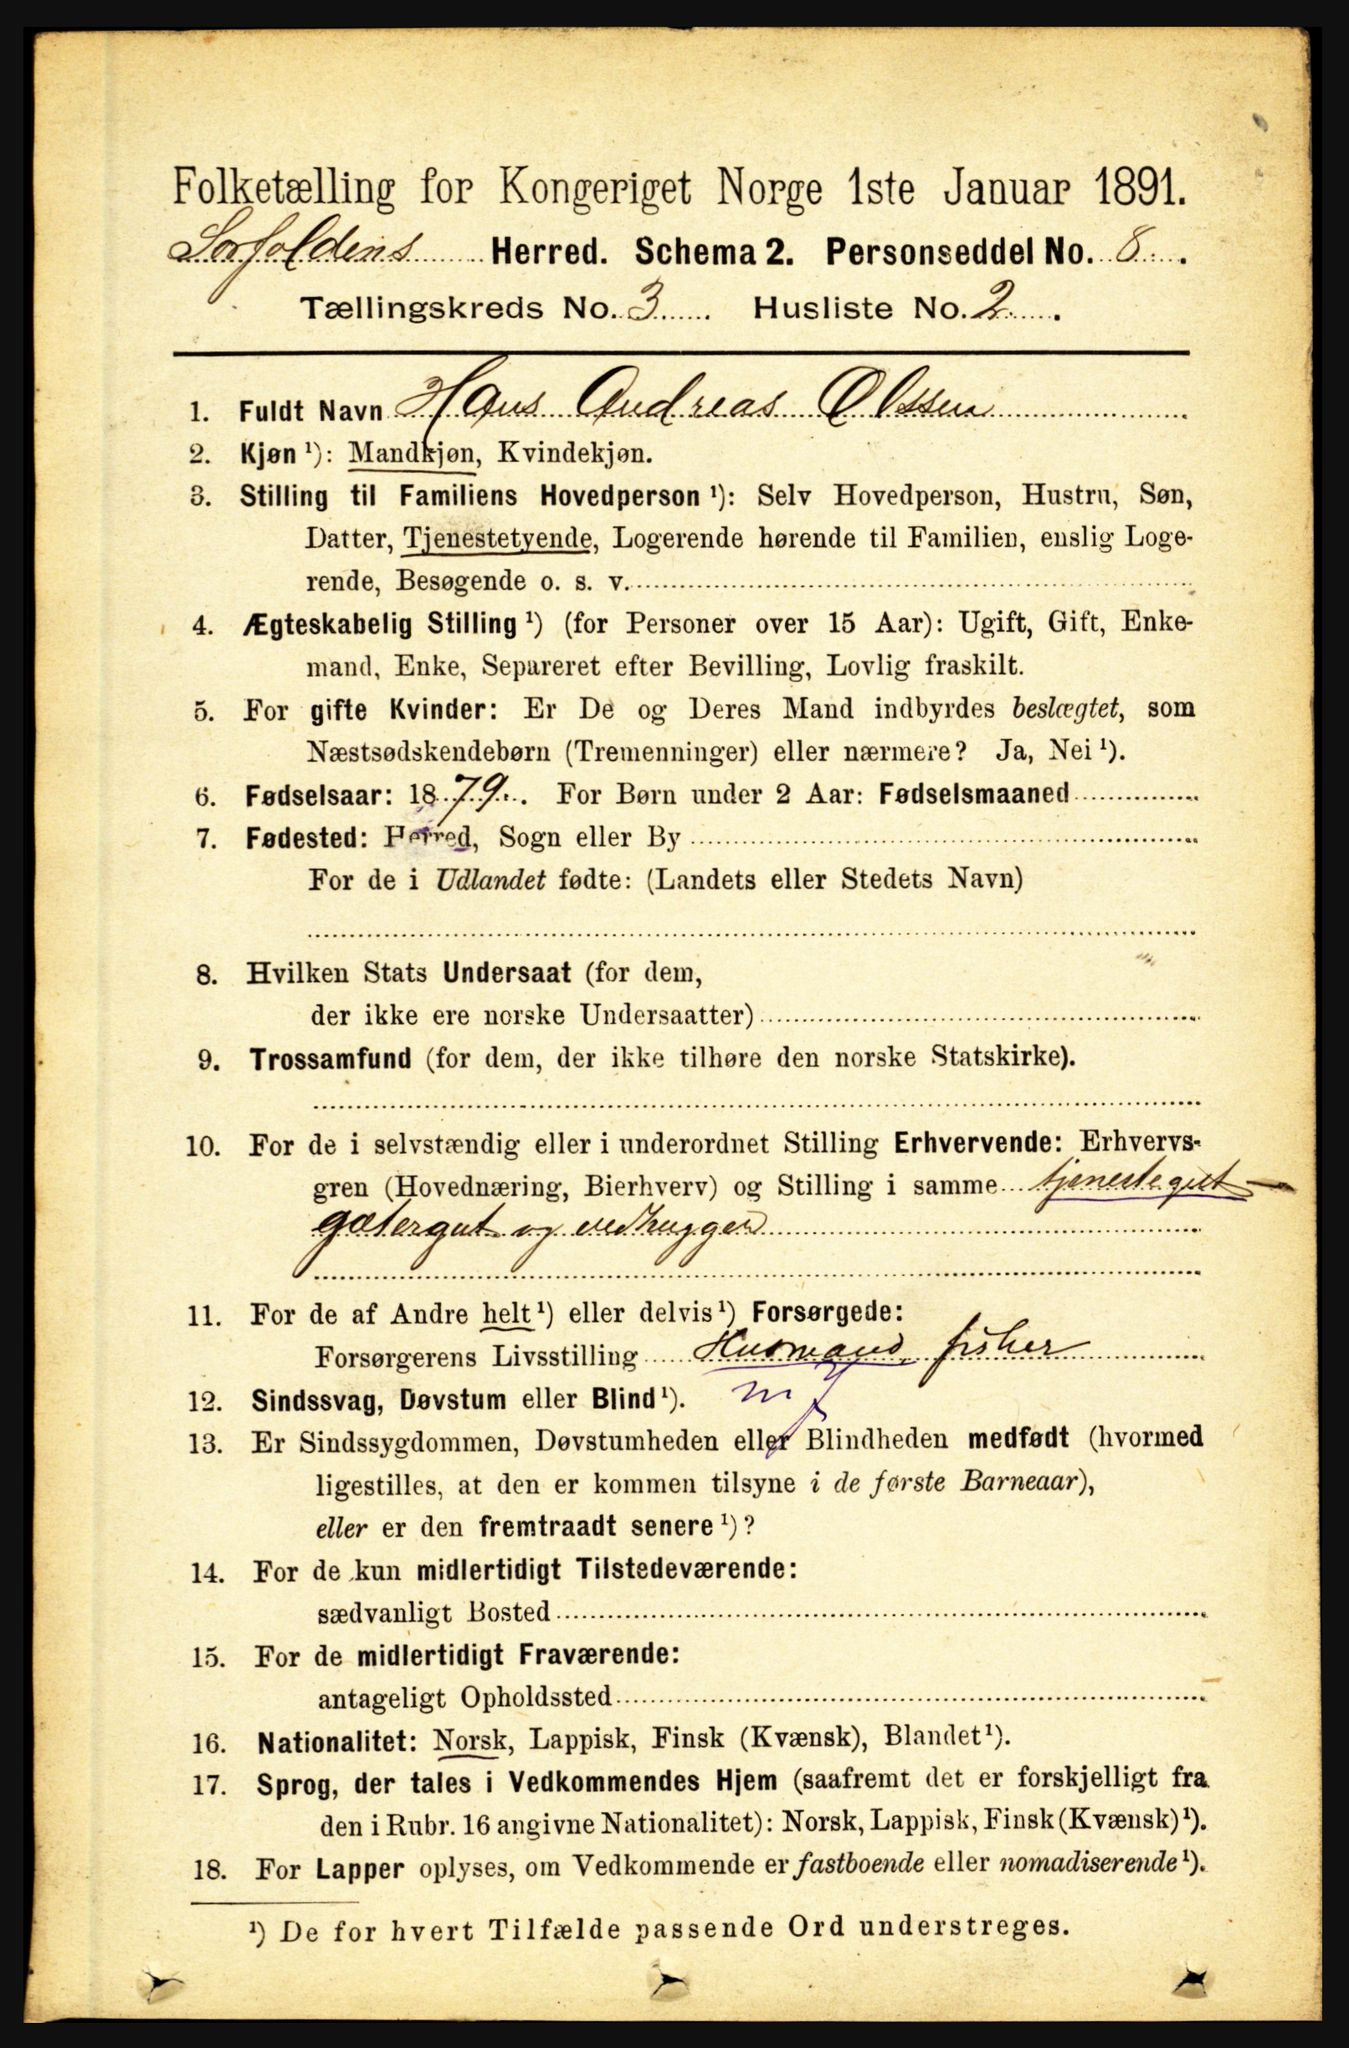 Folketælling for Kongeriget Norge 1ste Januar 1891.
Sørfoldens Herred. Schema 2. Personseddel No. 8.
Tællingskreds No. 3. Husliste No. 2.
1. Fuldt Navn Hans Andreas Olssen
2. Kjøn ¹): Mandkjøn, Kvindekjøn.
3. Stilling til Familiens Hovedperson ¹): Selv Hovedperson, Hustru, Søn,
Datter, Tjenestetyende, Logerende hørende til Familien, enslig Loge-
rende, Besøgende o. s. v.
4. Ægteskabelig Stilling ¹) (for Personer over 15 Aar): Ugift, Gift, Enke-
mand, Enke, Separeret efter Bevilling, Lovlig fraskilt.
5. For gifte Kvinder: Er De og Deres Mand indbyrdes beslægtet, som
Næstsødskendebørn (Tremenninger) eller nærmere? Ja, Nei ¹).
6. Fødselsaar: 1879. For Børn under 2 Aar: Fødselsmaaned
7. Fødested: Herred, Sogn eller By
For de i Udlandet fødte: (Landets eller Stedets Navn)
8. Hvilken Stats Undersaat (for dem,
der ikke ere norske Undersaatter)
9. Trossamfund (for dem, der ikke tilhøre den norske Statskirke).
10. For de i selvstændig eller i underordnet Stilling Erhvervende: Erhvervs-
gren (Hovednæring, Bierhverv) og Stilling i samme tjenestegut
gætergut og vedhugger
11. For de af Andre helt ¹) eller delvis ¹) Forsørgede:
Forsørgerens Livsstilling Husmand, fisker
12. Sindssvag, Døvstum eller Blind ¹). mf
13. Er Sindssygdommen, Døvstumheden eller Blindheden medfødt (hvormed
ligestilles, at den er kommen tilsyne i de første Barneaar),
eller er den fremtraadt senere ¹)?
14. For de kun midlertidigt Tilstedeværende:
sædvanligt Bosted
15. For de midlertidigt Fraværende:
antageligt Opholdssted
16. Nationalitet: Norsk, Lappisk, Finsk (Kvænsk), Blandet ¹).
17. Sprog, der tales i Vedkommendes Hjem (saafremt det er forskjelligt fra
den i Rubr. 16 angivne Nationalitet): Norsk, Lappisk, Finsk (Kvænsk) ¹).
18. For Lapper oplyses, om Vedkommende er fastboende eller nomadiserende ¹).
¹) De for hvert Tilfælde passende Ord understreges.